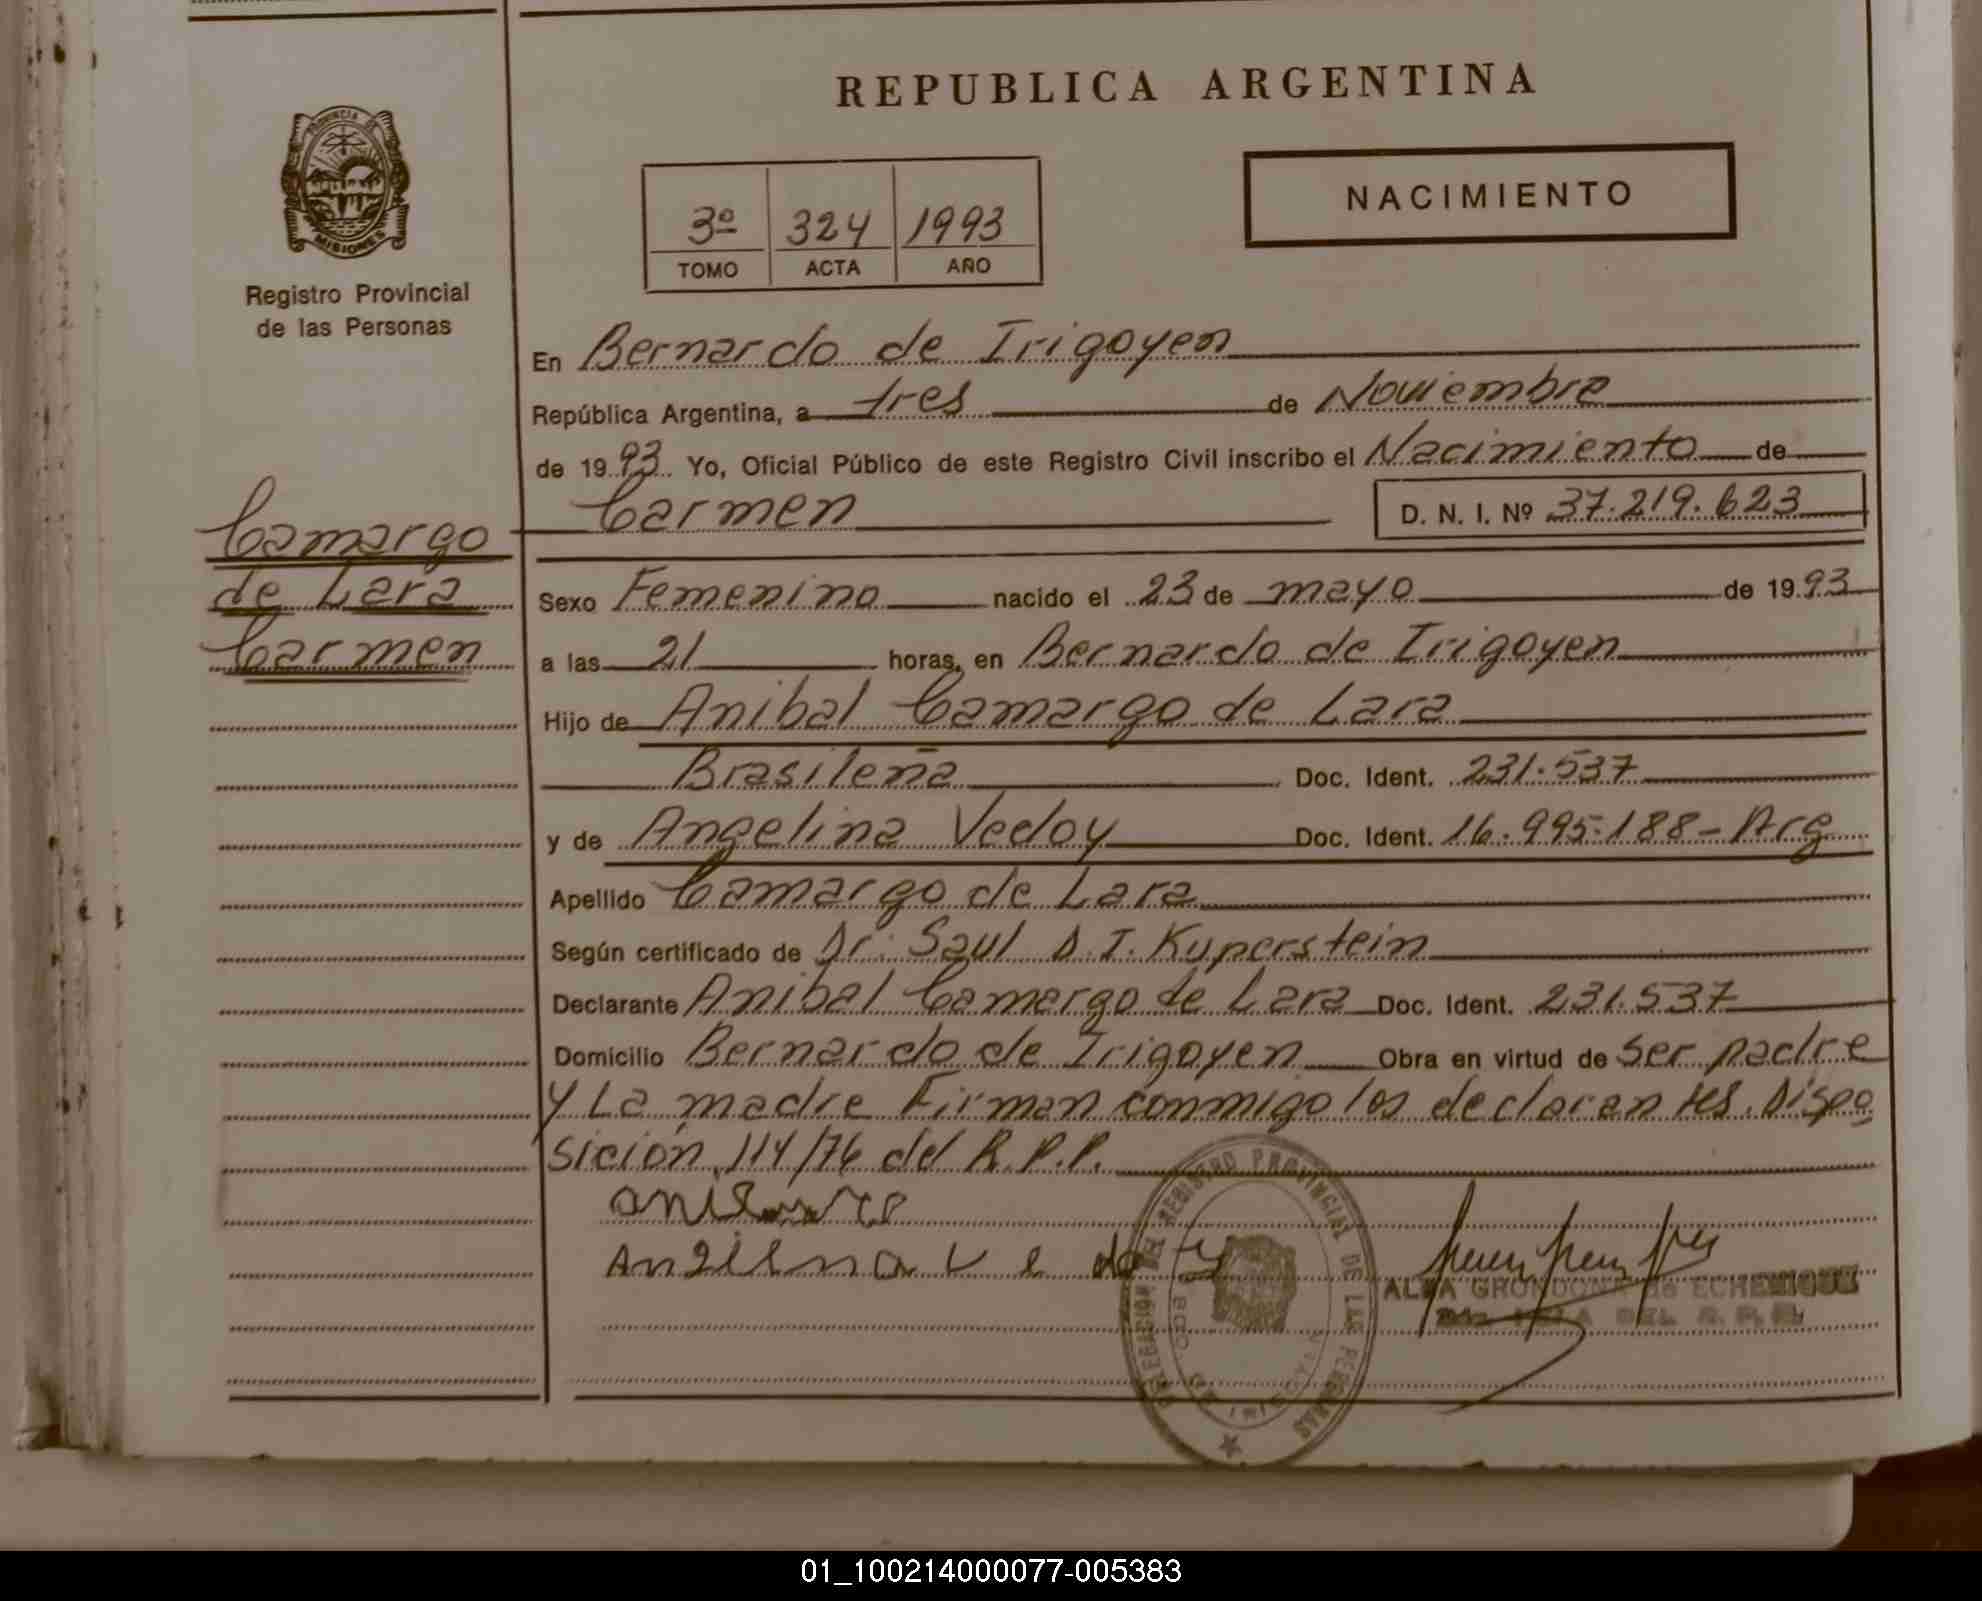 REPUBLICA ARGENTINA
PROVINCIA DE
MISIONES
Registro Provincial
de las Personas
NACIMIENTO
3º 324 1993
TOMO ACTA AÑO
En Bernardo de Irigoyen
República Argentina, a tres de Noviembre
de 1993 Yo, Oficial Público de este Registro Civil inscribo el Nacimiento de
Carmen D. N. I. Nº 37.219.623
Camargo
de Lara
Carmen
Sexo Femenino nacido el 23 de mayo de 1993
a las 21 horas, en Bernardo de Irigoyen
Hijo de Anibal Camargo de Lara
Brasileña Doc. Ident. 231.537
y de Angelina Vedoy Doc. Ident. 16.995.188 - Arg
Apellido Camargo de Lara
Según certificado de Dr. Saul D. I. Kuperstein
Declarante Anibal Camargo de Lara Doc. Ident. 231.537
Domicilio Bernardo de Irigoyen Obra en virtud de ser padre
y La madre Firman conmigo los declarantes. Dispo
sición 114/76 del R.P.P.
Angelina Vedoy
REGISTRO PROVINCIAL DE LAS PERSONAS
ALBA GRONDONA de ECHENIQUE
DEL R. P. P.
01_100214000077-005383